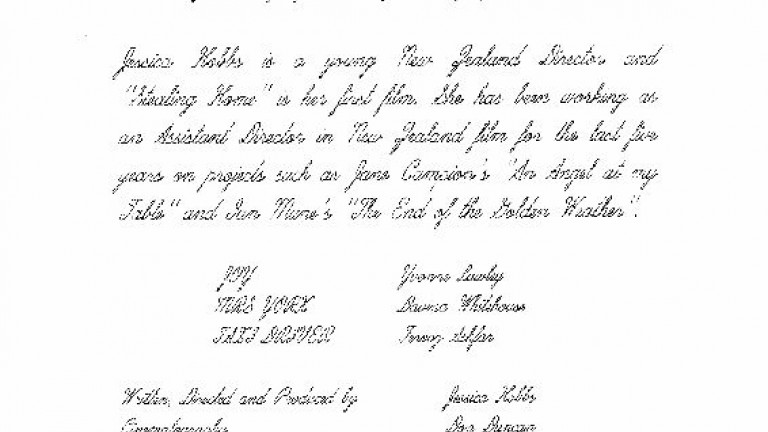 Jessica Hobbs is a young New Zealand Director and
"Stealing Home" is her first film. She has been working as
an Assistant Director in New Zealand film for the last five
years on projects such as Jane Campion's "An Angel at my
Table" and Ian Mune's "The End of the Golden Weather".
JOY Yvonne Lawley
MRS YORK Davina Whitehouse
TAXI DRIVER
Written, Directed and Produced by Jessica Hobbs
Cinematography Don Duncan